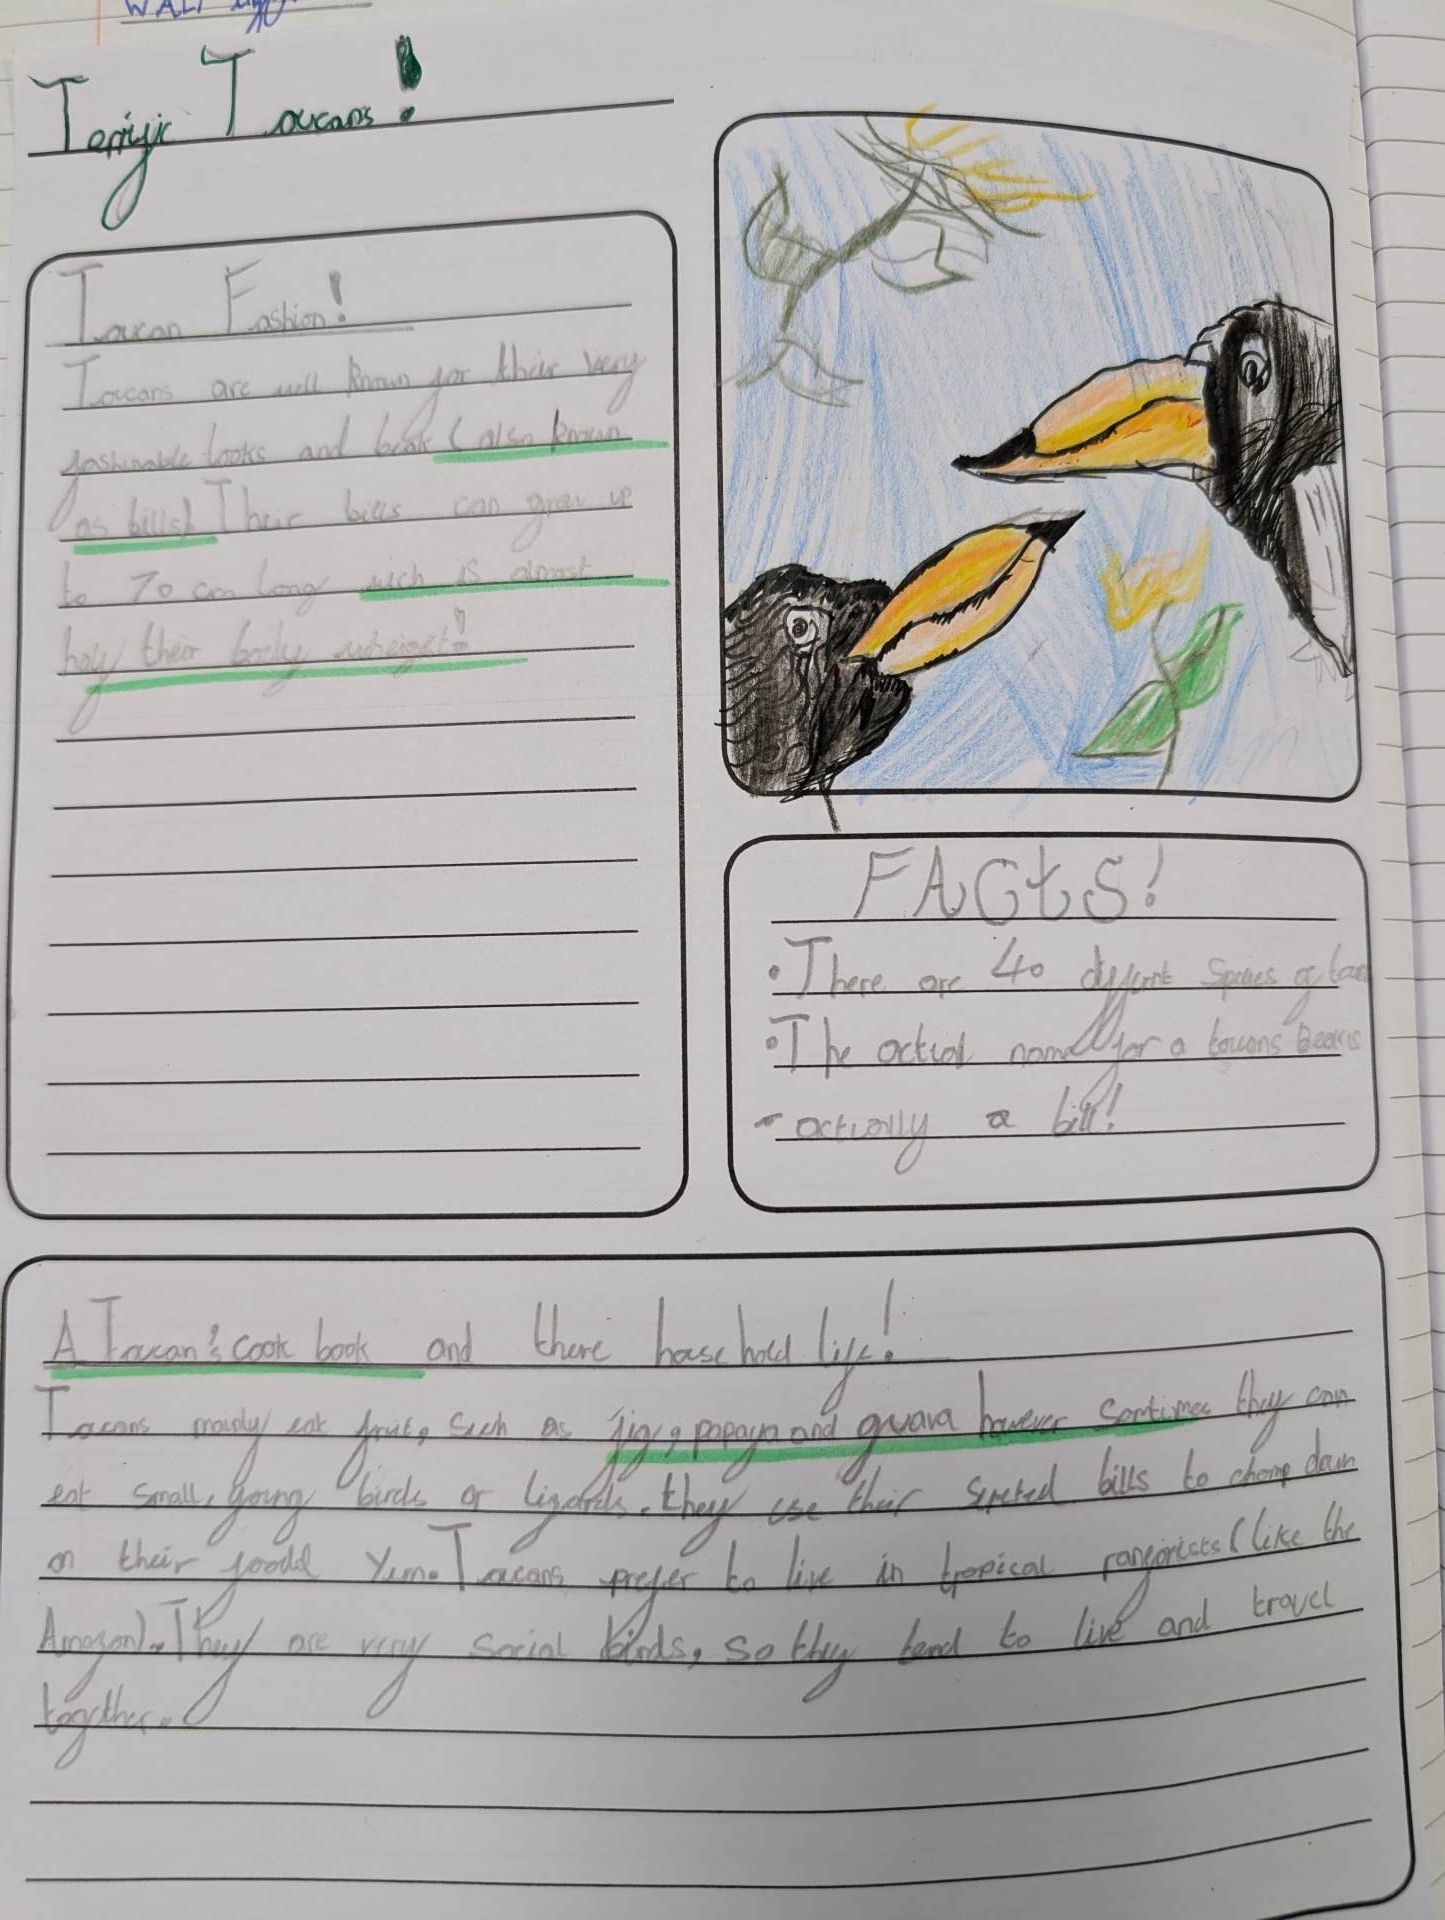 WALT
Terrific Toucans!
Toucan Fashion!
Toucans are well known for their very
fashinable looks and beak (also known
as bills). Their bills can grow up
to 70 cm long wich is almost
half their body wheight!
FACtS!
• There are 40 differnt Species of
• The actual name for a toucans Beak is
- actually a bill!
A Toucan's cook book and there house hold life!
Toucans mainly eat fruit, such as fig, papaya and guava however somtimes they can
eat small, young birds or lizards. they use their bills to chomp down
on their food Yum. Toucans prefer to live in tropical (like the
Amazon). They are very social birds, so they tend to live and travel
together.